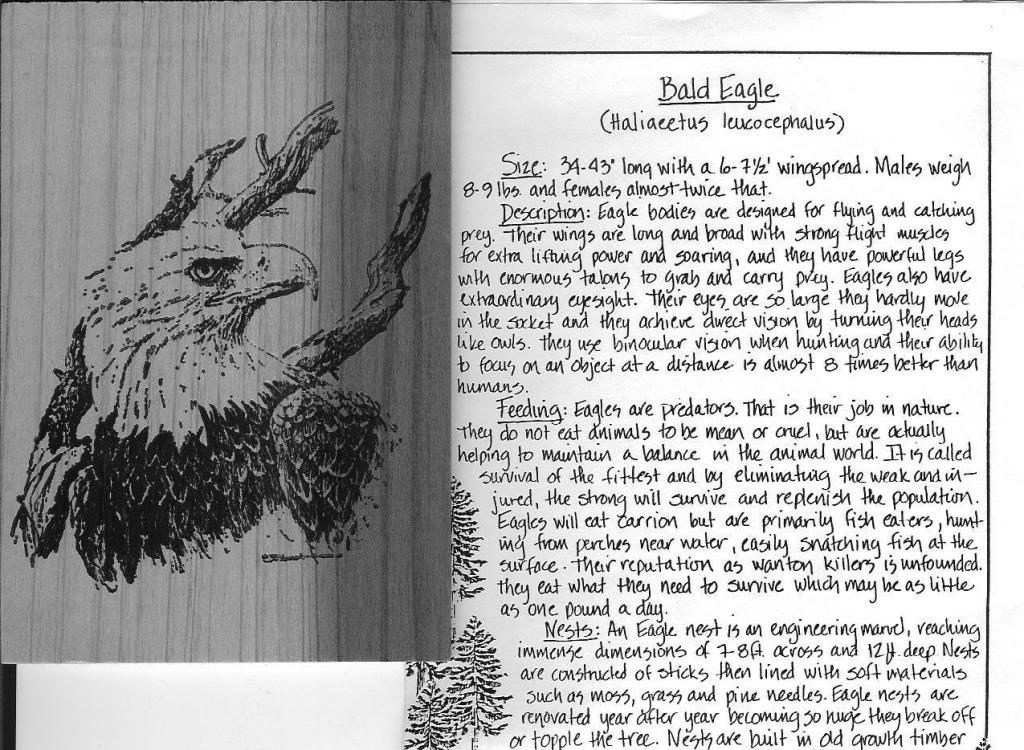 Bald Eagle
(Haliaeetus leucocephalus)
Size: 34-43" long with a 6-7½' wingspread. Males weigh
8-9 lbs. and females almost twice that.
Description: Eagle bodies are designed for flying and catching
prey. Their wings are long and broad with strong flight muscles
for extra lifting power and soaring, and they have powerful legs
with enormous talons to grab and carry prey. Eagles also have
extraordinary eyesight. Their eyes are so large they hardly move
in the socket and they achieve direct vision by turning their heads
like owls. They use binocular vision when hunting and their ability
to focus on an object at a distance is almost 8 times better than
humans.
Feeding: Eagles are predators. That is their job in nature.
They do not eat animals to be mean or cruel, but are actually
helping to maintain a balance in the animal world. It is called
survival of the fittest and by eliminating the weak and in-
jured, the strong will survive and replenish the population.
Eagles will eat carrion but are primarily fish eaters, hunt-
ing from perches near water, easily snatching fish at the
surface. Their reputation as wanton killers is unfounded.
They eat what they need to survive which may be as little
as one pound a day.
Nests: An Eagle nest is an engineering marvel, reaching
immense dimensions of 7-8ft. across and 12ft. deep. Nests
are constructed of sticks then lined with soft materials
such as moss, grass and pine needles. Eagle nests are
renovated year after year becoming so huge they break off
or topple the tree. Nests are built in old growth timber